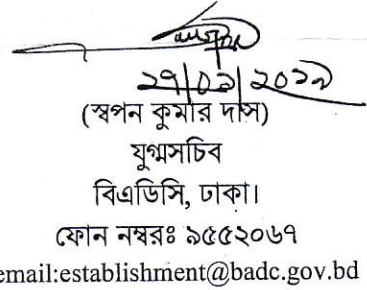 ২৭|০১|২০১৯
(স্বপন কুমার দাস)
যুগ্মসচিব
বিএডিসি, ঢাকা।
ফোন নম্বরঃ ৯৫৫২০৬৭
email:establishment@badc.gov.bd